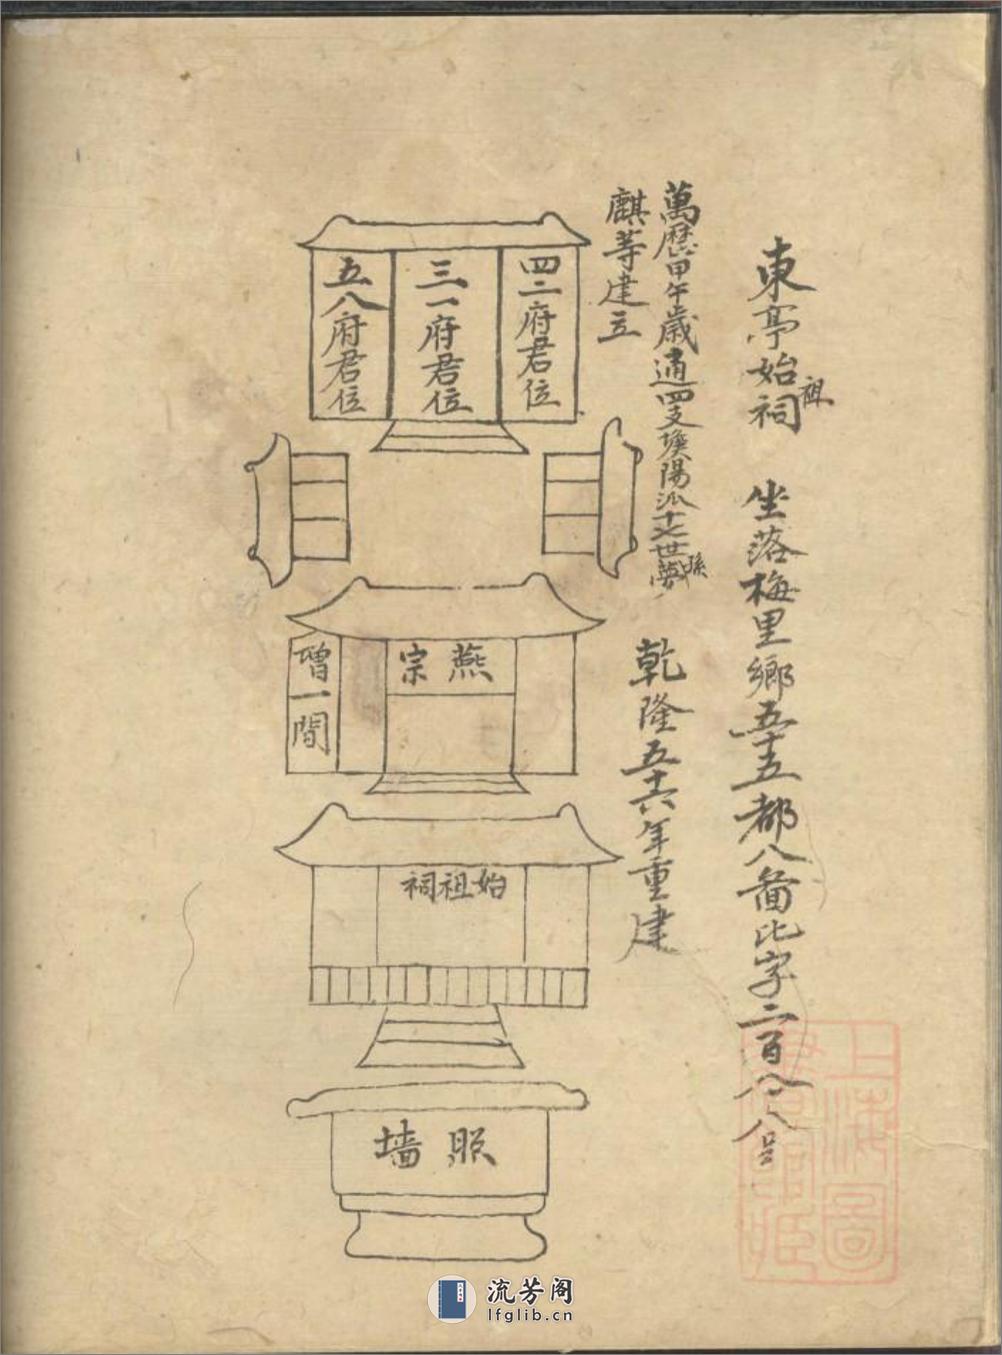 東亭始祖祠　坐落梅里鄉五十五都八啚比字二百八十八号
萬歷甲午歲通四支煥陽派十七世孫夢
麒等建立
乾隆五十六年重建
四二府君位
三一府君位
五八府君位
燕宗
增一間
始祖祠
照墻
上海圖
流芳阁
lfglib.cn